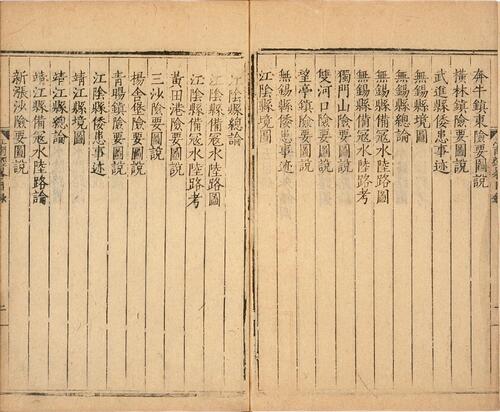 奔牛鎮東險要圖說
橫林鎮險要圖說
武進縣倭患事迹
無錫縣境圖
無錫縣總論
無錫縣備寇水陸路圖
無錫縣備寇水陸路考
獨門山險要圖說
雙河口險要圖說
望亭鎮險要圖說
無錫縣倭患事迹
江陰縣境圖
江陰縣總論
江陰縣備寇水陸路圖
江陰縣備寇水陸路考
黃田港險要圖說
三沙險要圖說
楊舍堡險要圖說
青暘鎮險要圖說
江陰縣倭患事迹
靖江縣境圖
靖江縣總論
靖江縣備寇水陸路論
新漲沙險要圖說